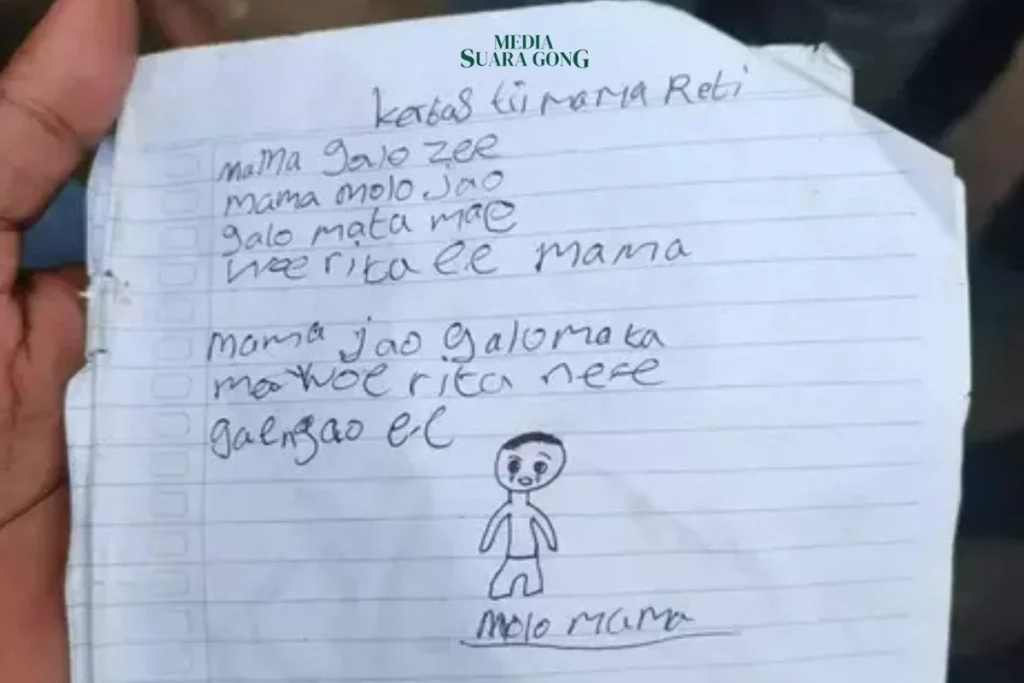 MEDIA
SUARA GONG
kertas tii mama Reti
mama galo zee
mama molo jao
galo mata mae
woe rita ee mama
mama jao galo mata
mae woe rita ne
gae ngao ee
molo mama